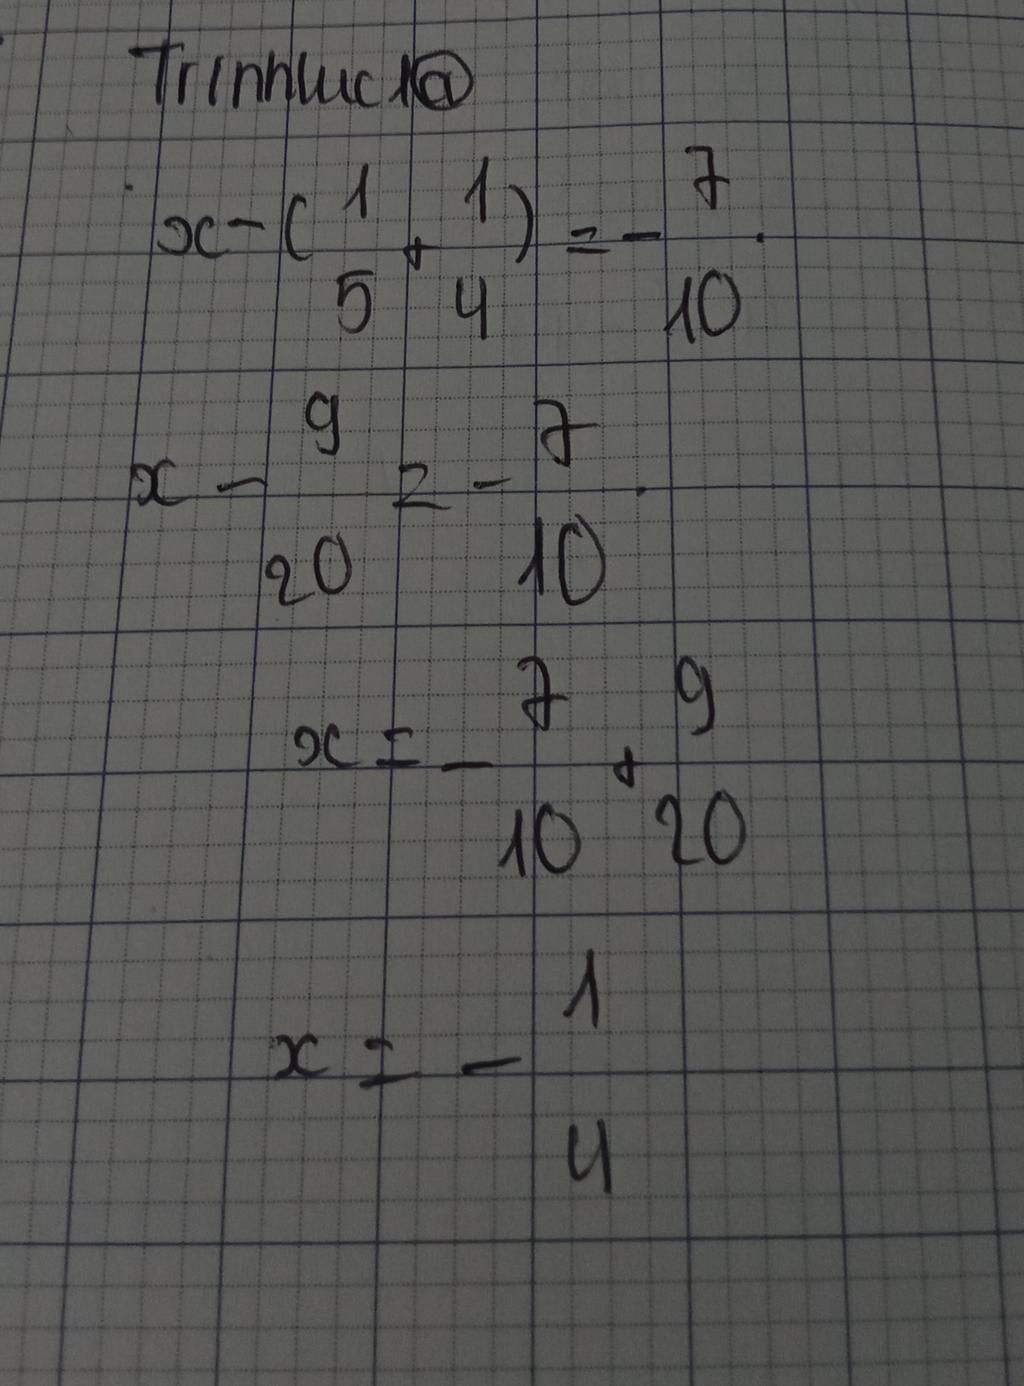 Trinhluc1@
x - ( 1/5 + 1/4 ) = - 7/10 .
x - 9/20 = - 7/10 .
x = - 7/10 + 9/20
x = - 1/4